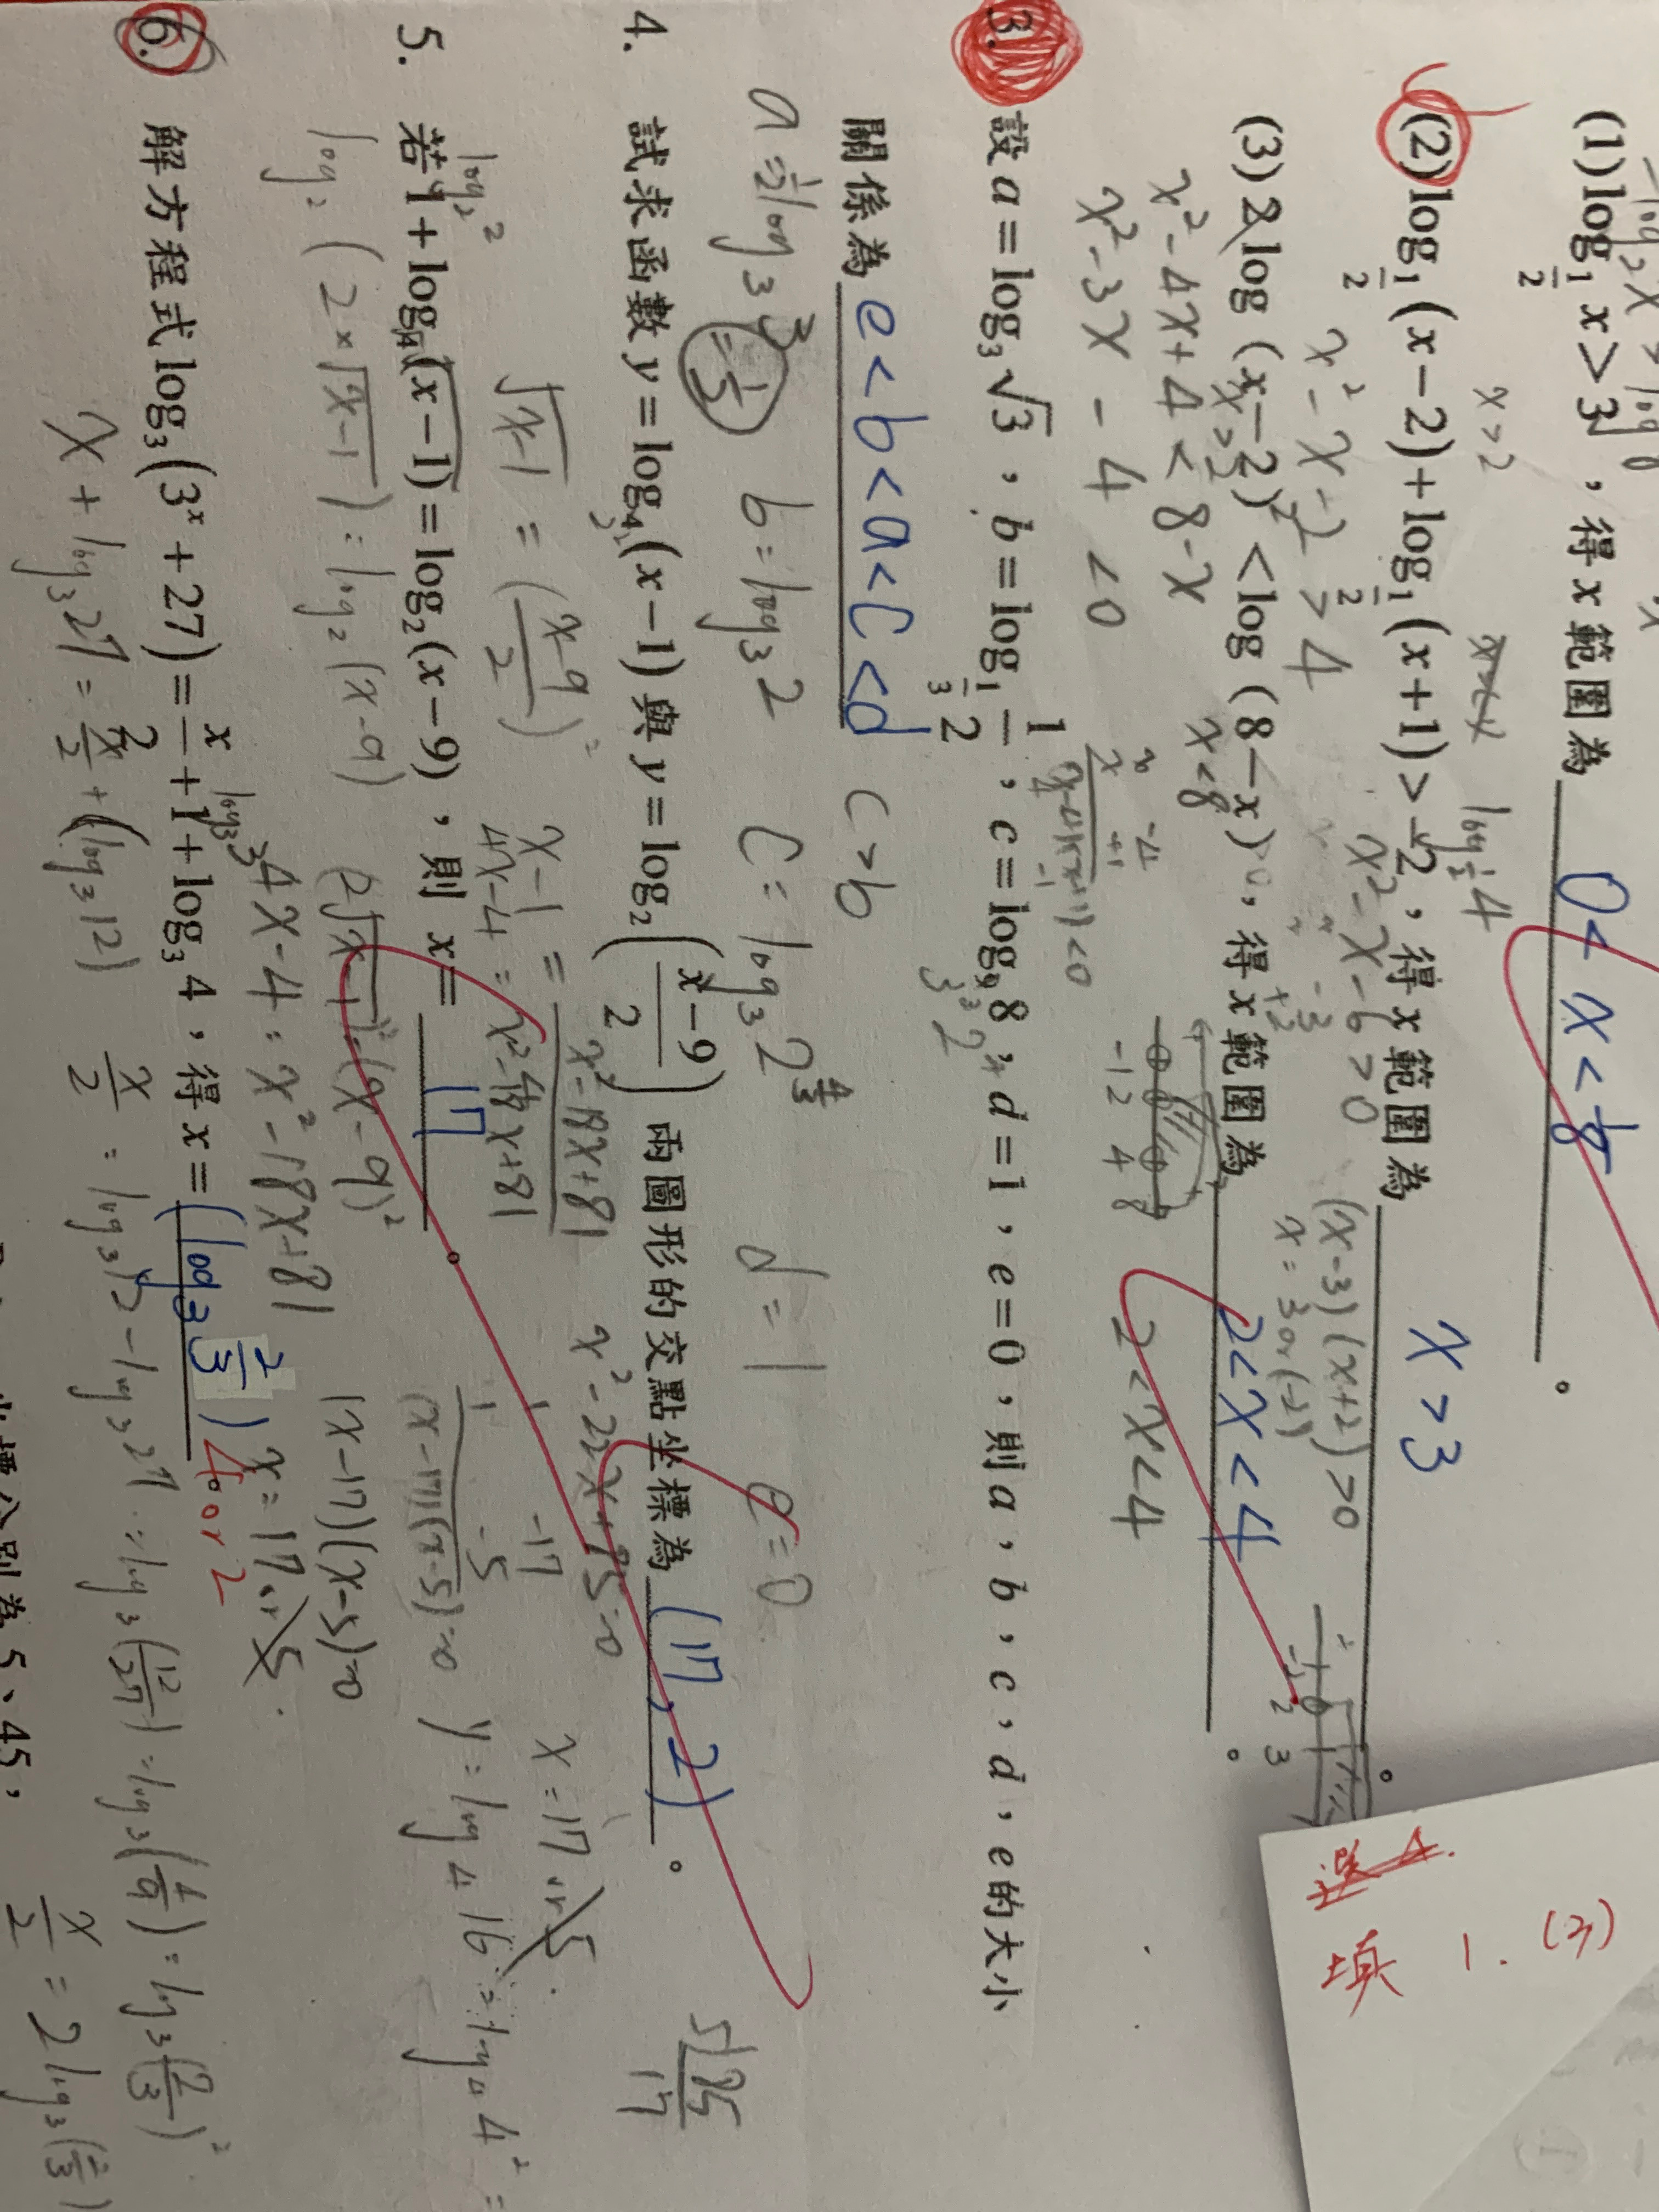 (1) log_{1/2} x > 3 , 得 x 範圍為 0 < x < 1/8 。
x > 2
(2) log_{1/2} (x − 2) + log_{1/2} (x + 1) > −2 , 得 x 範圍為 x > 3 。
x² − x − 2 > 4
x² − x − 6 > 0
(x−3)(x+2) > 0
x = 3 or (−2)
(3) 2 log (x − 2)² < log (8 − x) , 得 x 範圍為 2 < x < 4 。
x < 8
x² − 4x + 4 < 8 − x
x² − 3x − 4 < 0
−1 2 4 8
2 < x < 4
3. 設 a = log₃ √3 , b = log_{1/3} 1/2 , c = log₉ 8 , d = 1 , e = 0 , 則 a , b , c , d , e 的大小
關係為 e < b < a < c < d
c > b
a = 1/2 log₃ 3 = 1/2
b = log₃ 2
d = 1
e = 0
4. 試求函數 y = log₄ (x − 1) 與 y = log₂ ((x − 9)/2) 兩圖形的交點坐標為 (17, 2) 。
√(x−1) = ((x−9)/2)²
x² − 18x + 81
4x − 4 =
x² − 22x + 85 = 0
−17
−5
(x−17)(x−5) = 0
x = 17 or 5
y = log 4 16 = log 4 4² =
5 85
17
5. 若 1 + log₄ (x − 1) = log₂ (x − 9) , 則 x = 17 。
log₂ 2
log₂ (2 × √(x−1)) = log₂ (x−9)
(2√(x−1))² = (x−9)²
4x − 4 = x² − 18x + 81
(x−17)(x−5) = 0
x = 17 or 5
6. 解方程式 log₃ (3ˣ + 27) = x/2 + 1 + log₃ 4 , 得 x = (log₃ 2/3) 4 or 2
log₃ 3
x + log₃ 27 = x/2 + (log₃ 12)
x/2 = log₃ 12 − log₃ 27 = log₃ (12/27) = log₃ (4/9) = log₃ (2/3)²
x/2 = 2 log₃ (2/3)
5、45,
填 1. (3)